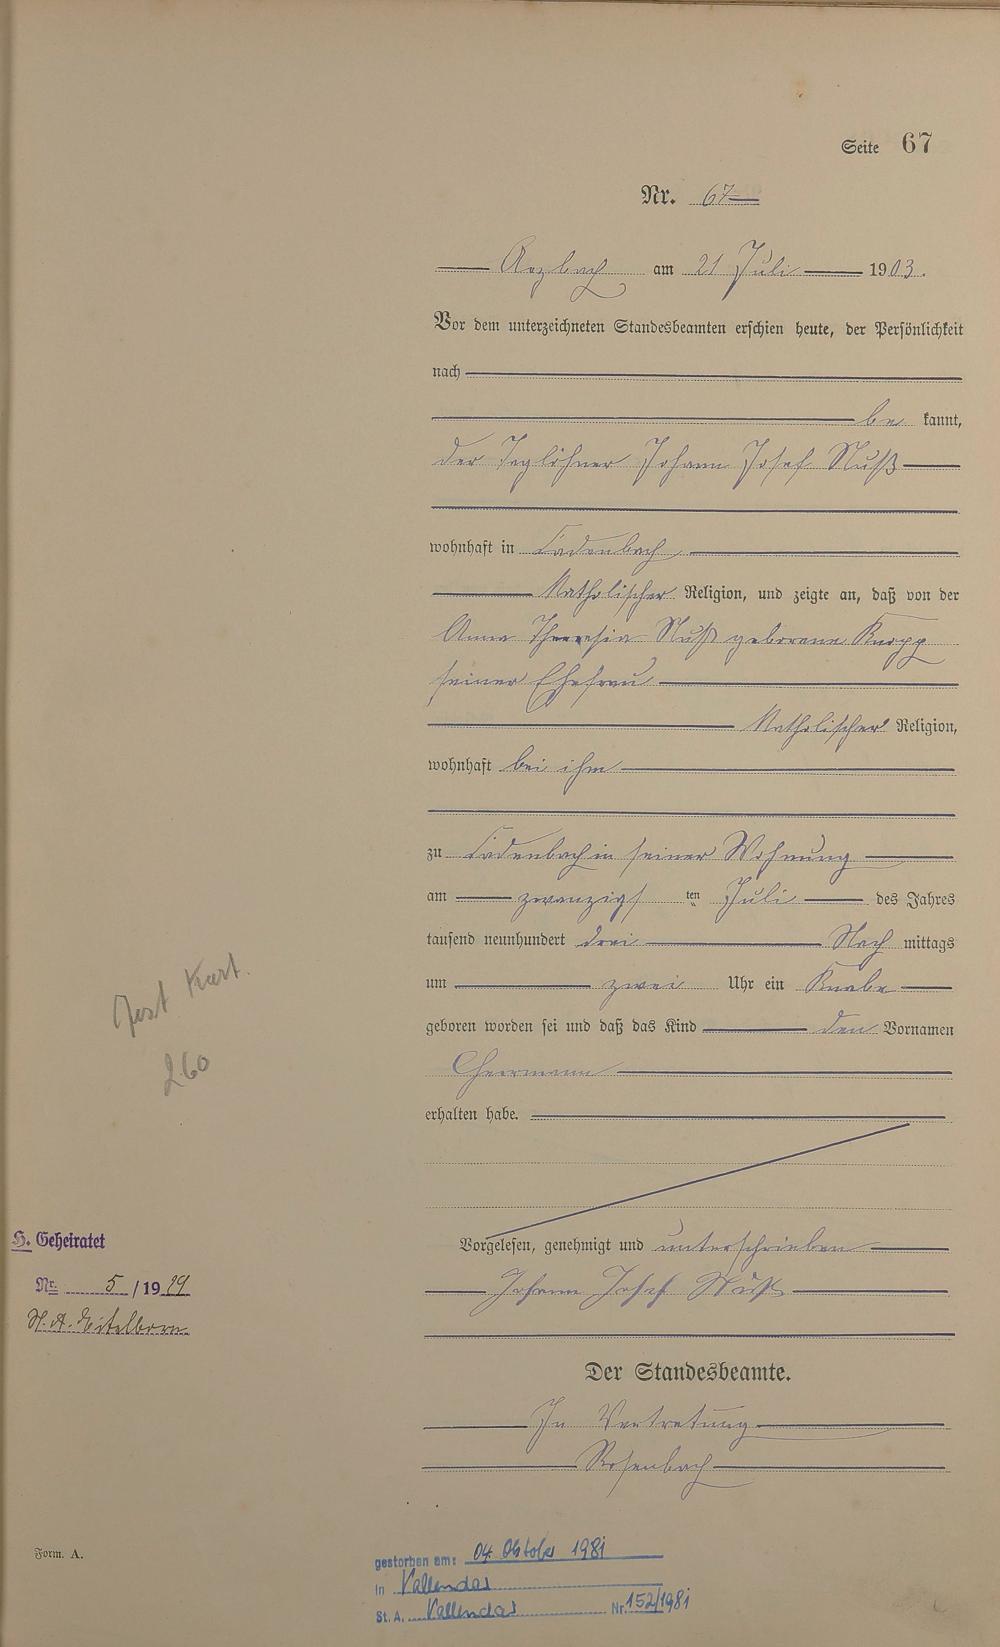 Seite 67
Nr. 67
Arzbach am 21 Juli 1903.
Vor dem unterzeichneten Standesbeamten erschien heute, der Persönlichkeit
nach
be kannt,
der Taglöhner Johann Josef Nuß
wohnhaft in Cadenbach
Katholischer Religion, und zeigte an, daß von der
Anna Theresia Nuß geborene Knopp
seiner Ehefrau
Katholischer Religion,
wohnhaft bei ihm
zu Cadenbach in seiner Wohnung
am zwanzigsten Juli des Jahres
tausend neunhundert drei Nach mittags
um zwei Uhr ein Knabe
geboren worden sei und daß das Kind den Vornamen
Herrmann
erhalten habe.
Vorgelesen, genehmigt und unterschrieben
Johann Josef Nuß
Der Standesbeamte.
In Vertretung
Rosenbach
260
H. Geheiratet
Nr. 5/19
St. A. Eitelborn
Form. A.
gestorben am: 04. Oktober 1981
in Vallendar
St. A. Vallendar Nr. 152/1981